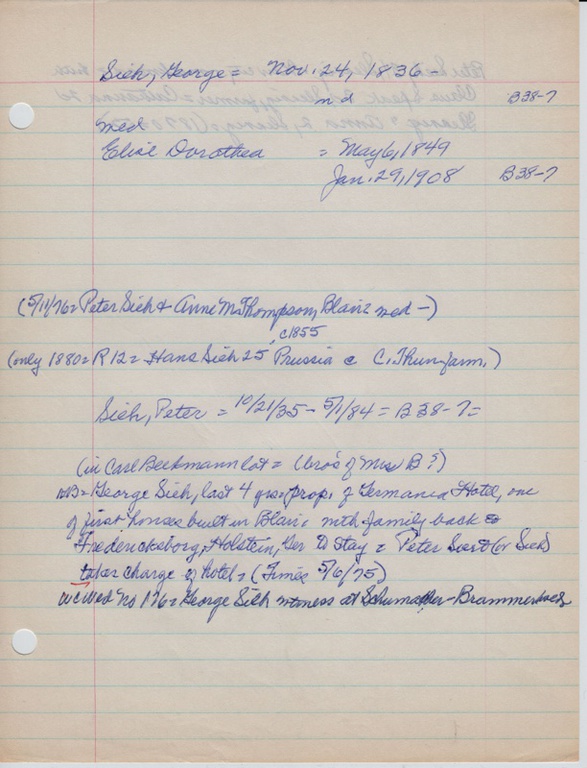 Sieh, George = Nov. 24, 1836 –
nd B38-7
med
Elise Dorothea = May 6, 1849
Jan. 29, 1908 B38-7
(5/11/76 = Peter Sieh & Anne M. Thompson, Blair = med –)
c1855
(only 1880 = R12 = Hans Sieh 25, Prussia c C. Thun farm.)
Sieh, Peter = 10/21/35 – 5/1/84 = B38-7 =
(in Carl Beckmann lot = (bro's of Mrs B?)
NB = George Sieh, last 4 yrs. prop. of Germania Hotel, one
of first houses built in Blair, with family back to
Fredericksborg, Holstein, Ger to stay = Peter (or Sieh)
takes charge of hotel = (Times 5/6/75)
WCWed No 176 = George Sieh witness at